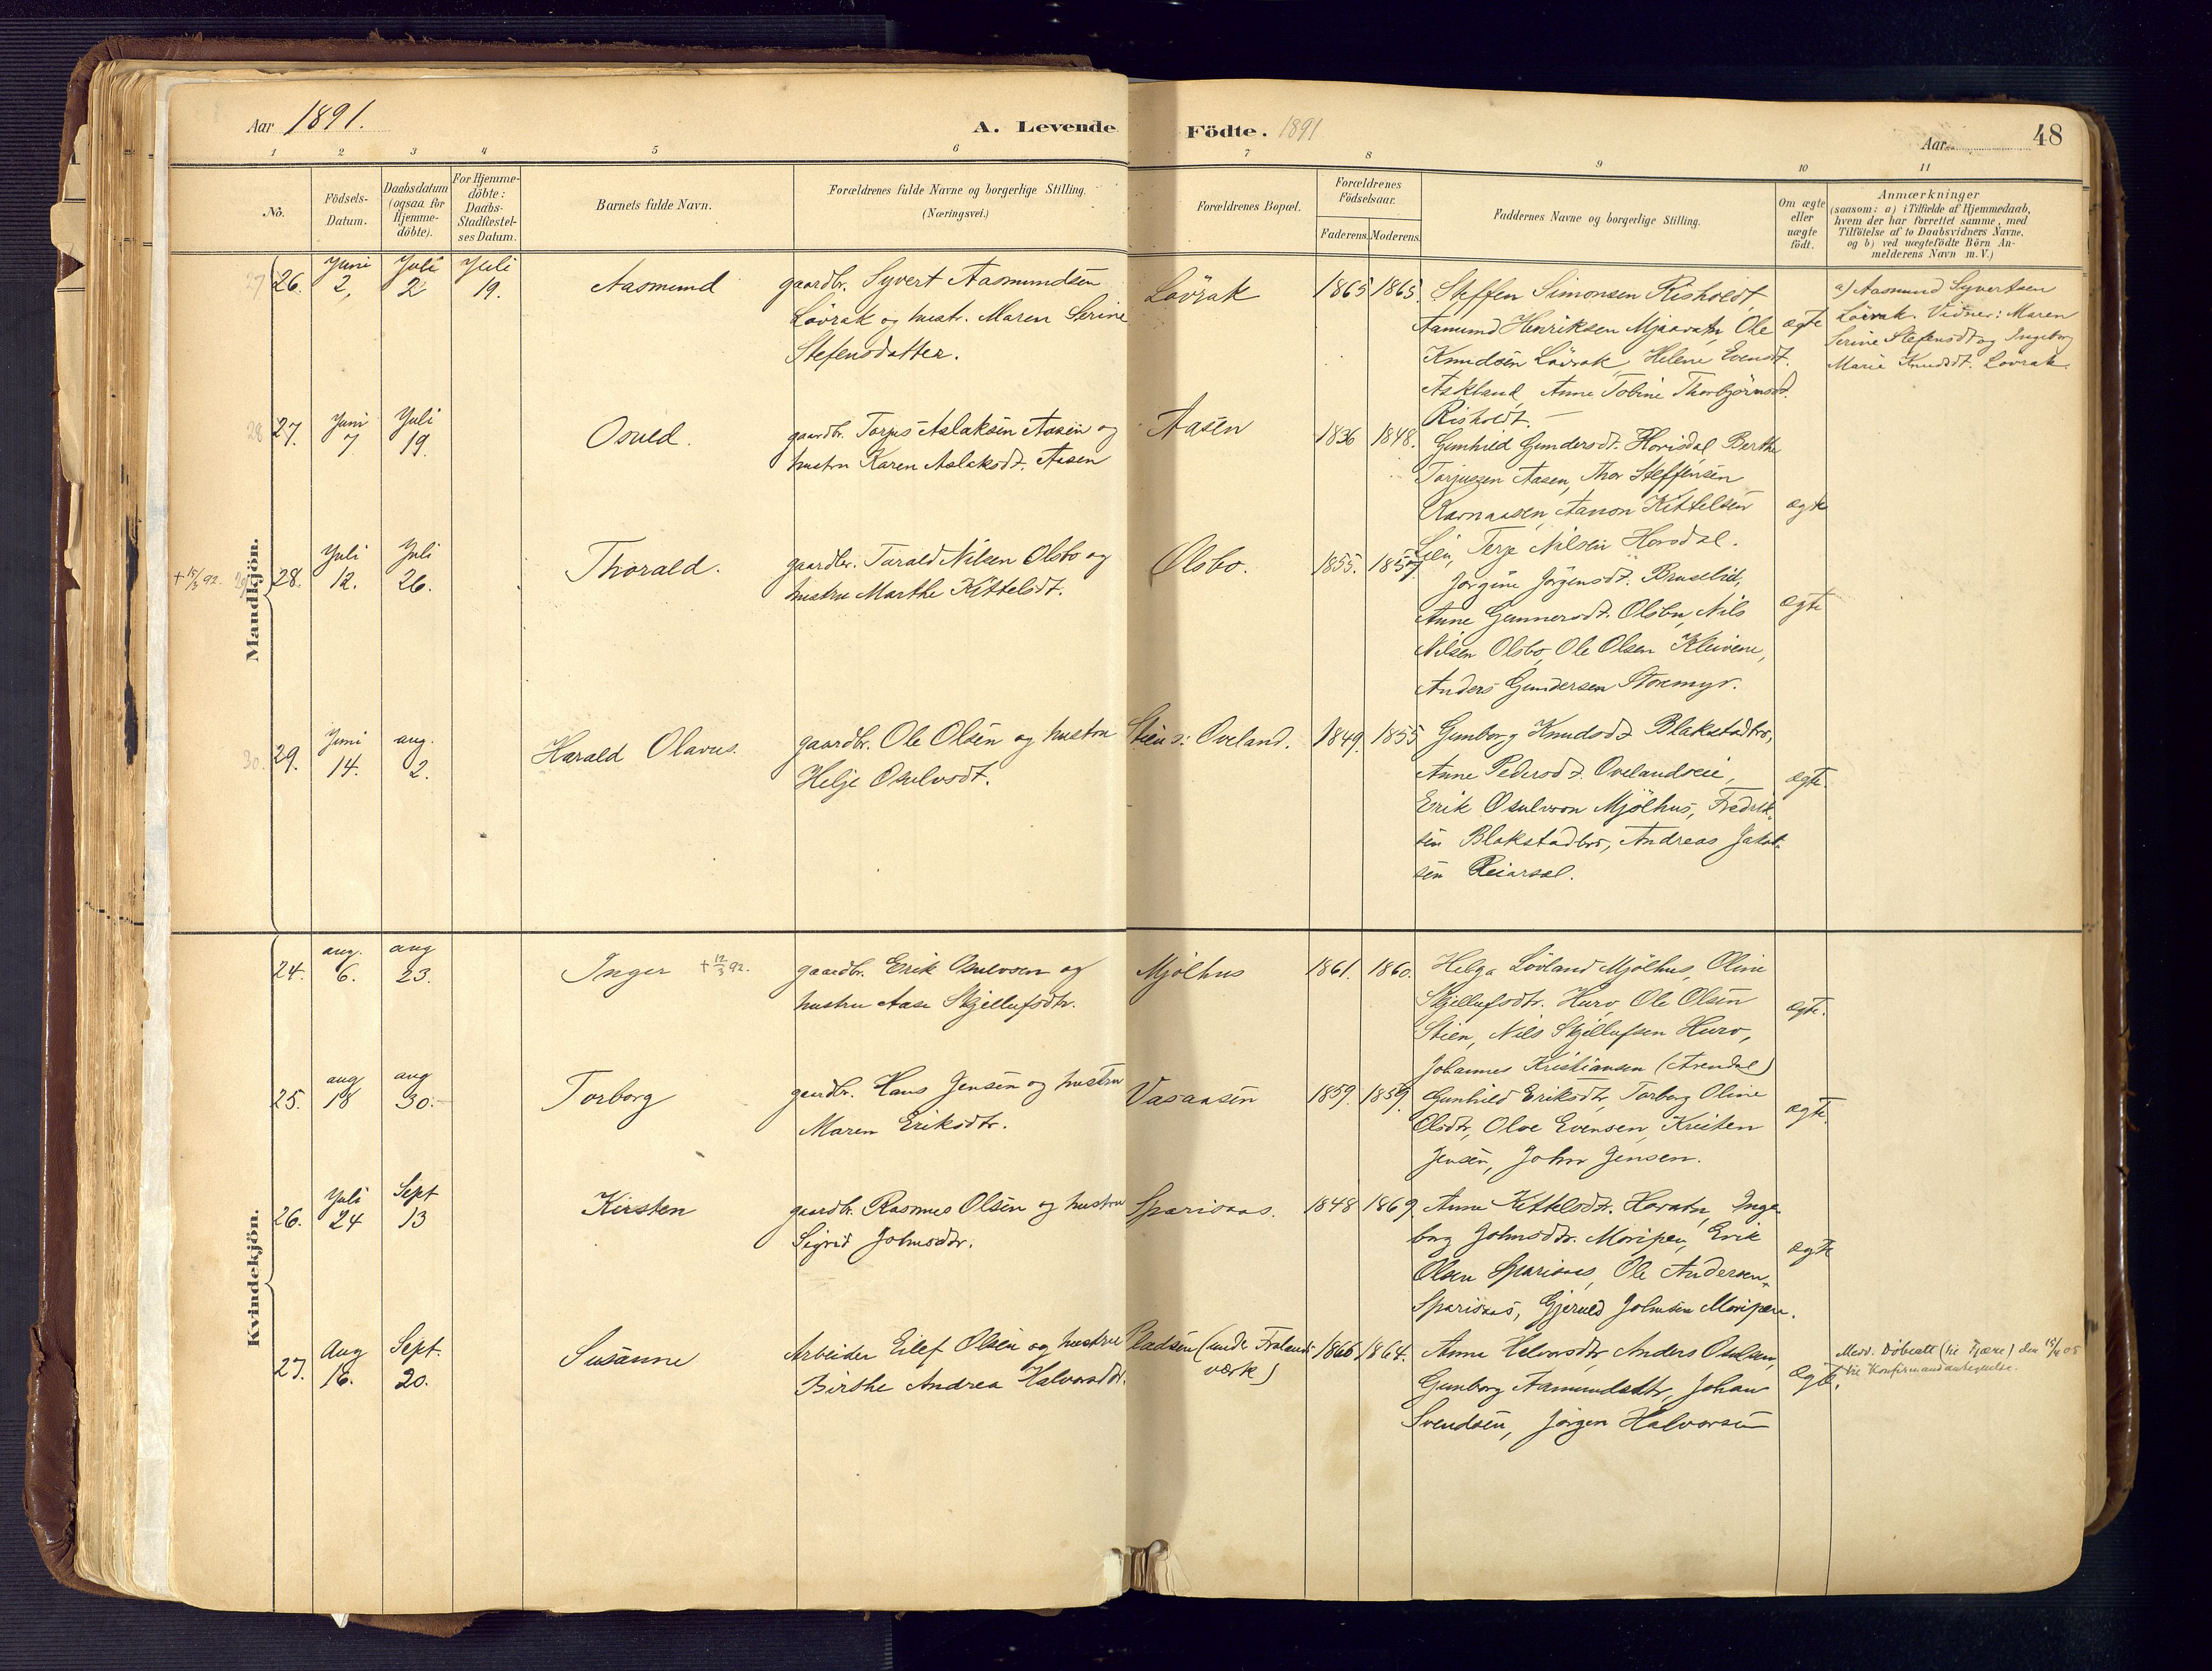 Aar 1891.
A. Levende Födte. 1891
Aar
48
1 2 3 4 5 6 7 8 9 10 11
No.
Födsels-
Datum.
Daabsdatum
(ogsaa for
Hjemme-
döbte).
For Hjemme-
döbte:
Daabs-
Stadfæstel-
ses Datum.
Barnets fulde Navn.
Forældrenes fulde Navne og borgerlige Stilling.
(Næringsvei.)
Forældrenes Bopæl.
Forældrenes
Födselsaar.
Faderens. Moderens.
Faddernes Navne og borgerlige Stilling.
Om ægte
eller
uægte
födt.
Anmærkninger
(saasom: a) i Tilfælde af Hjemmedaab,
hvem der har forrettet samme, med
Tilföielse af to Daabsvidners Navne,
og b) ved uægtefödte Börn An-
melderens Navn m. V.)
Mandkjön.
27 26. Juni 2, Juli 2 Juli 19. Aasmund
gaardbr. Syvert Aasmundsen
Lövrak og hustr. Maren Serine
Stefensdatter.
Lövrak 1865 1865.
Steffen Simonsen Risholdt,
Aamund Henriksen Mjaavatn, Ole
Knudsen Lövrak, Helene Evensdt.
Askland, Anne Tobine Thorbjörnsd.
Risholdt.
ægte
a) Aasmund Syvertsen
Lövrak. Vidner: Maren
Serine Stefensdt og Ingeborg
Marie Knudsdt. Lövrak.
28 27. Juni 7 Juli 19. Osuld.
gaardbr. Torjus Aslaksen Aasen og
hustru Karen Aslaksdt. Aasen
Aasen 1836 1848.
Gunhild Gundersdt. Hovisdal Berthe
Torjussen Aasen, Thor Steffensen
Ravnaasen, Aanon Kittelsen
Lien, Terje Nilsen Hovsdal.
ægte
+ 15/3 92. 29 28. Juli 12. Juli 26. Thorald.
gaardbr. Torald Nilsen Olsbo og
hustru Marthe Kittelsdt.
Olsbo. 1855. 1857
Jörgine Jörgensdt. Bruselid,
Anne Gunnersdt. Olsbu, Nils
Nilsen Olsbo, Ole Olsen Kleivene,
Anders Gundersen Storemyr.
ægte
30. 29. Juni 14. aug. 2. Harald Olavus.
gaardbr. Ole Olsen og hustru
Helje Osulvsdt.
Stien s: Oveland. 1849. 1855
Gunborg Knudsdt Blakstadbro,
Anne Pedersdt. Ovelandseie,
Erik Osulvson Mjölhus, Fredrik-
sen Blakstadbro, Andreas Jakob-
sen Reiarsal.
ægte.
Kvindekjön.
24. aug. 6. aug 23. Inger + 12/3 92.
gaardbr. Erik Osulvsen og
hustru Aase Skjellufsdtr.
Mjölhus 1861. 1860.
Helga Lövland Mjölhus, Oline
Skjellufsdtr. Huro, Ole Olsen
Stien, Nils Skjellufsen Huro,
Johannes Kristiansen (Arendal)
ægte.
25. aug 18 aug 30. Torborg
gaardbr. Hans Jensen og hustru
Maren Eriksdtr.
Vasaasen 1859. 1859.
Gunhild Eriksdtr, Torborg Oline
Olsdtr, Olve Evensen, Kristen
Jensen, John Jensen.
ægte.
26. Juli 24 Sept 13 Kirsten
gaardbr. Rasmus Olsen og hustru
Sigrid Johnsdtr.
Sparsaas. 1848 1869
Anne Kittelsdtr. Havatn, Inge-
borg Johnsdtr. Moripen, Erik
Olsen Sparsaas, Ole Andersen
Sparsaas, Gjeruld Johnsen Moripen.
ægte
27. Aug 16. Sept. 20. Susanne
Arbeider Eilef Olsen og hustru
Birthe Andrea Halvorsdtr.
Pladsen (under Frolands
værk) 1866 1864.
Anna Halvorsdtr, Anders Osulsen,
Gunborg Aamundsdtr, Johan
Svendsen, Jörgen Halvorsen
Ægte.
Medd. Döbeatt (til Fjære) den 15/4 05
til Konfirmandantegnelse.